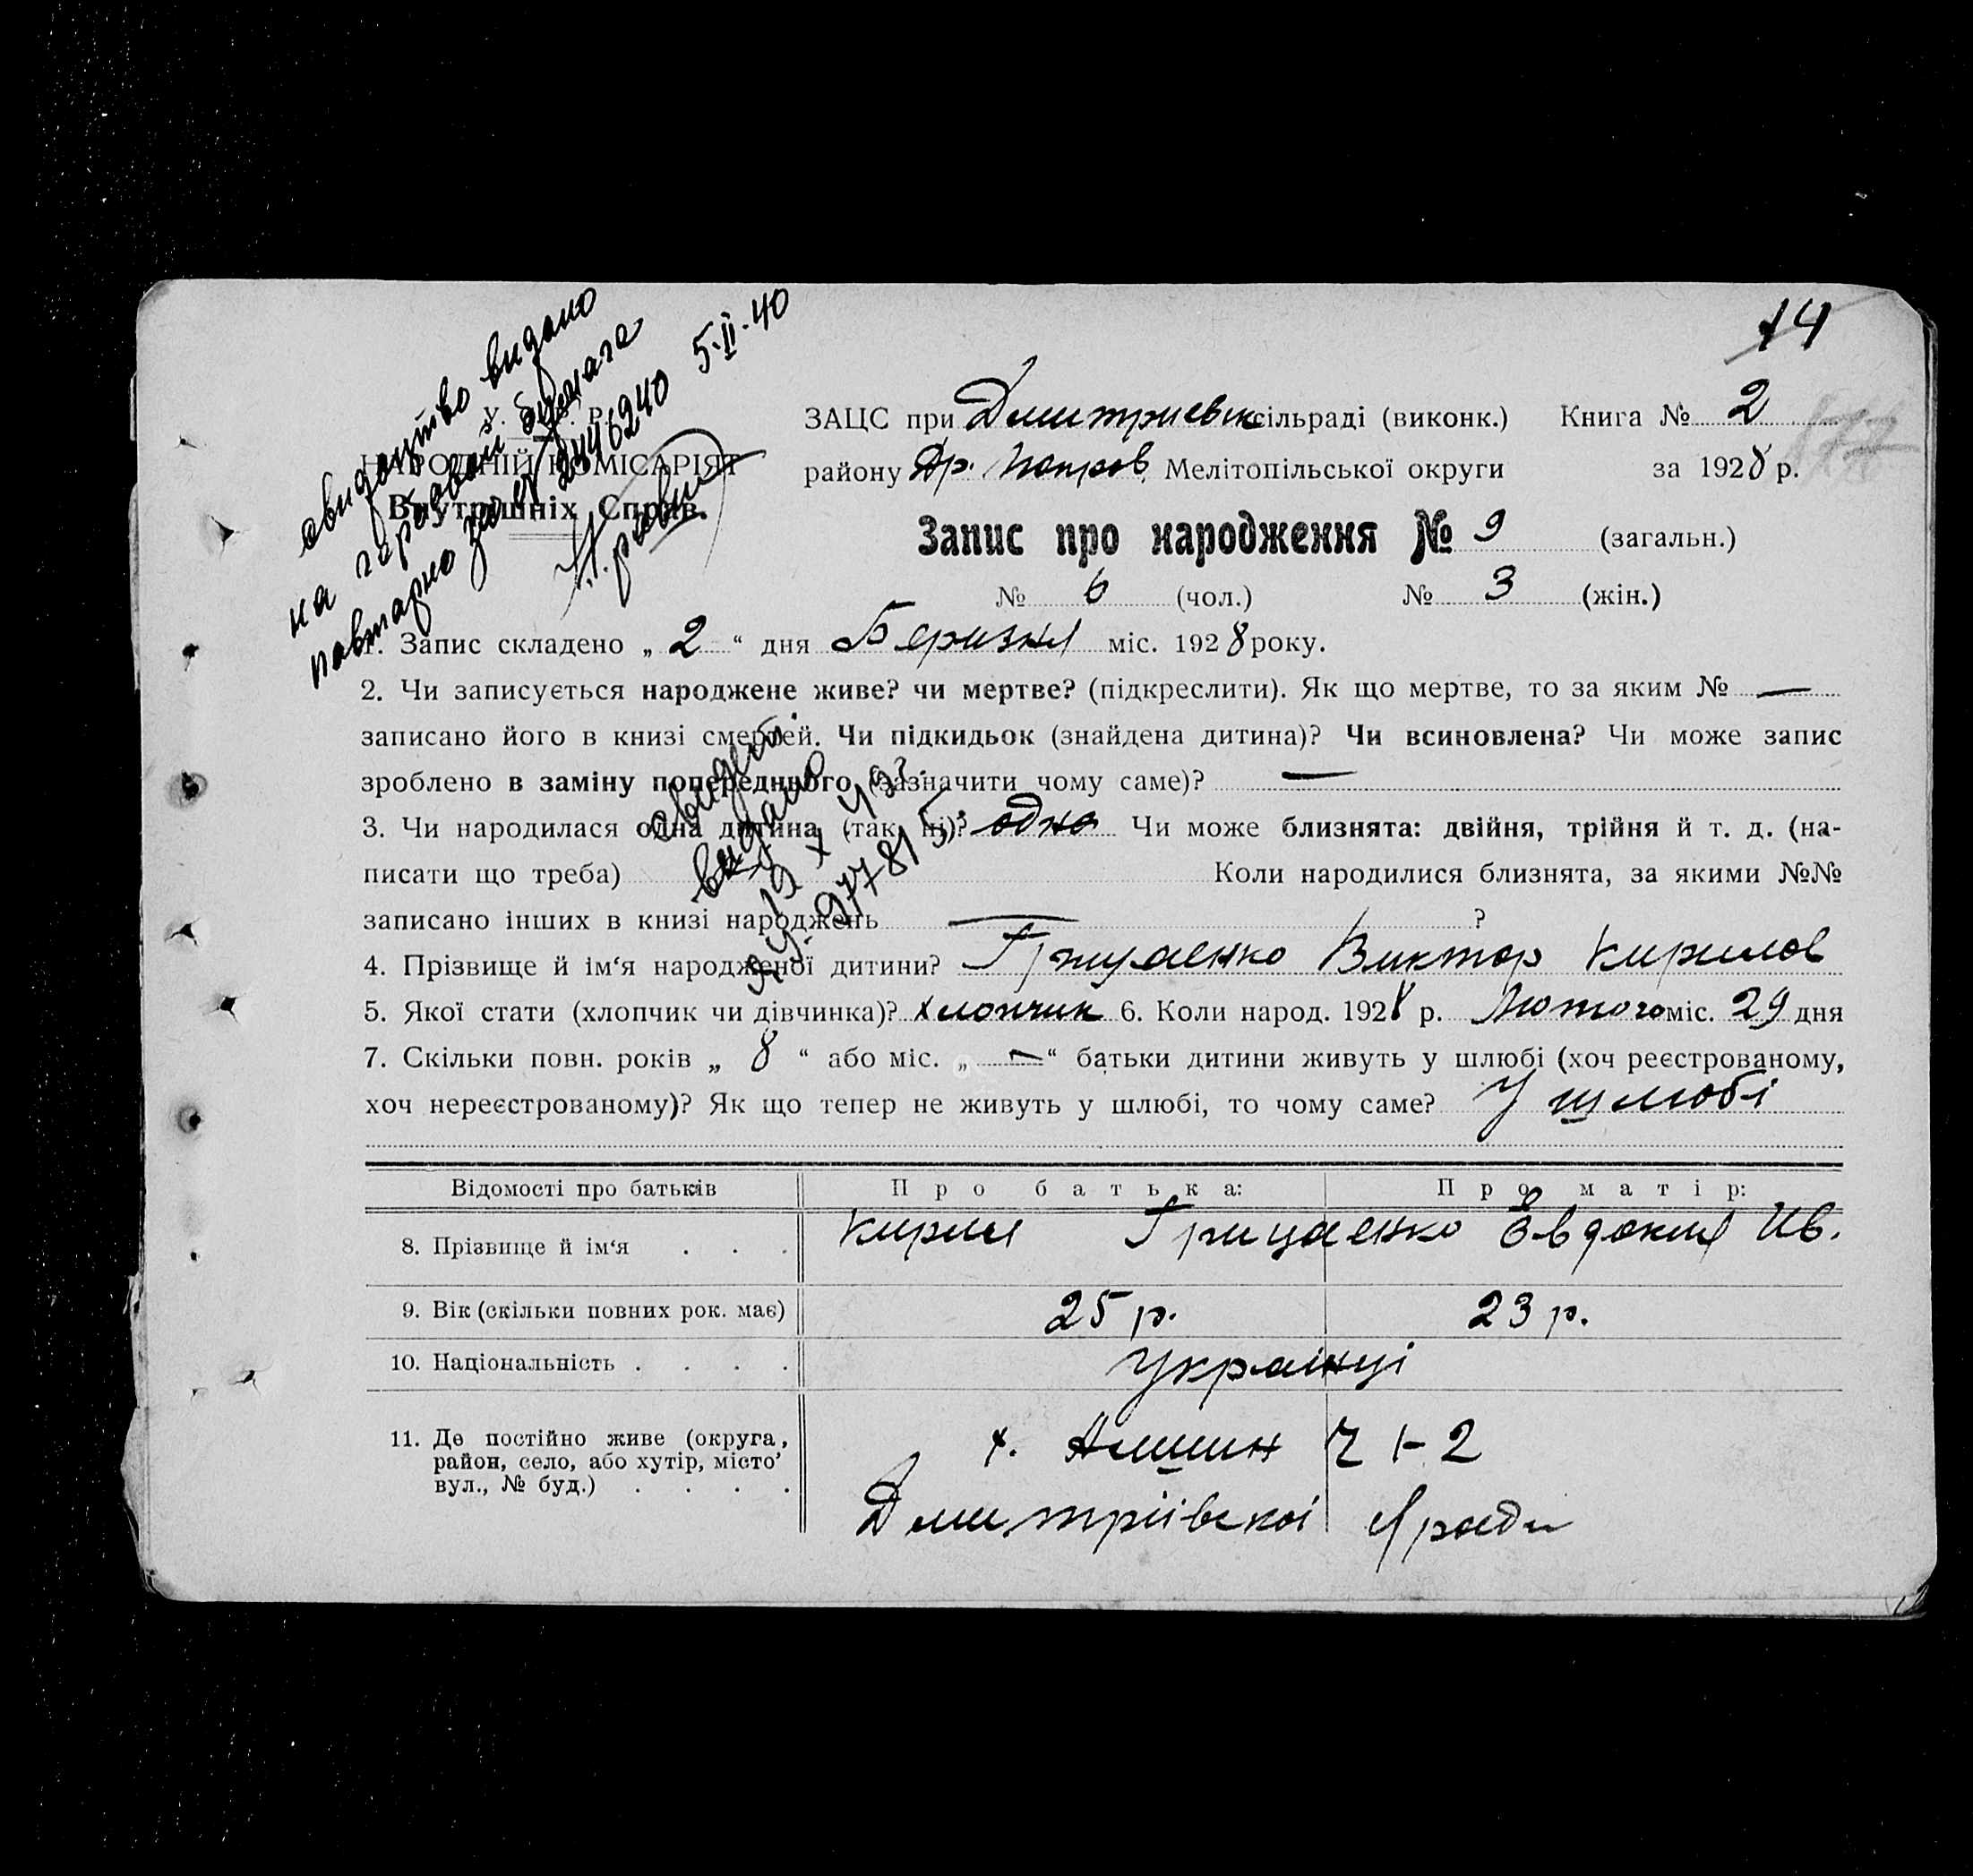 14
свидоцтво видано
на гербовой бумага
повтарно за № 2446240 5.II.40
У. С. Р. Р.
НАРОДНІЙ КОМІСАРІЯТ
Внутрішніх Справ.
ЗАЦС при Дмитриевск сільраді (виконк.) Книга № 2
району Др. Покров. Мелітопільської округи за 1928 р.
177
Запис про народження № 9 (загальн.)
№ 6 (чол.) № 3 (жін.)
1. Запис складено „ 2 “ дня Беризня міс. 1928 року.
2. Чи записується народжене живе? чи мертве? (підкреслити). Як що мертве, то за яким № —
записано його в книзі смертей. Чи підкидьок (знайдена дитина)? Чи всиновлена? Чи може запис
зроблено в заміну попереднього (зазначити чому саме)? —
3. Чи народилася одна дитина (так, ні)? одна Чи може близнята: двійня, трійня й т. д. (на-
писати що треба) Коли народилися близнята, за якими №№
записано інших в книзі народжень — ?
свидет.
видано
19 X 43?
977815
4. Прізвище й ім‘я народженої дитини? Грицаенко Виктор Кирилов
5. Якої стати (хлопчик чи дівчинка)? хлопчик 6. Коли народ. 1928 р. Лютого міс. 29 дня
7. Скільки повн. років „ 8 “ або міс. „ — “ батьки дитини живуть у шлюбі (хоч реєстрованому,
хоч нереєстрованому)? Як що тепер не живуть у шлюбі, то чому саме? У шлюбі
Відомості про батьків Про батька: Про матір:
8. Прізвище й ім‘я . . . Кирил Грицаенко Евдокия Ив.
9. Вік (скільки повних рок. має) 25 р. 23 р.
10. Національність . . . . Українці
11. Де постійно живе (округа, район, село, або хутір, місто, вул., № буд.) . . . .
х. Аншин Ч 1-2
Дмитріівскоі С/ради